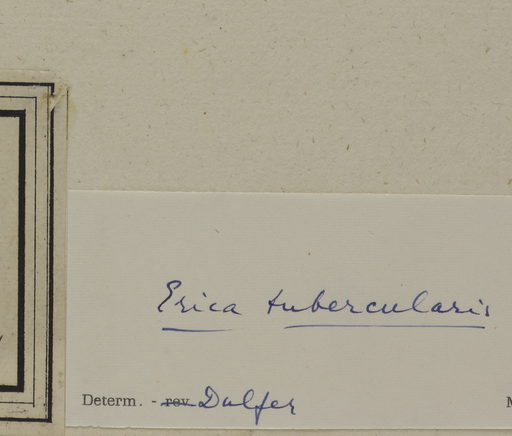 Erica tubercularis
Determ. - rev. Dulfer
M